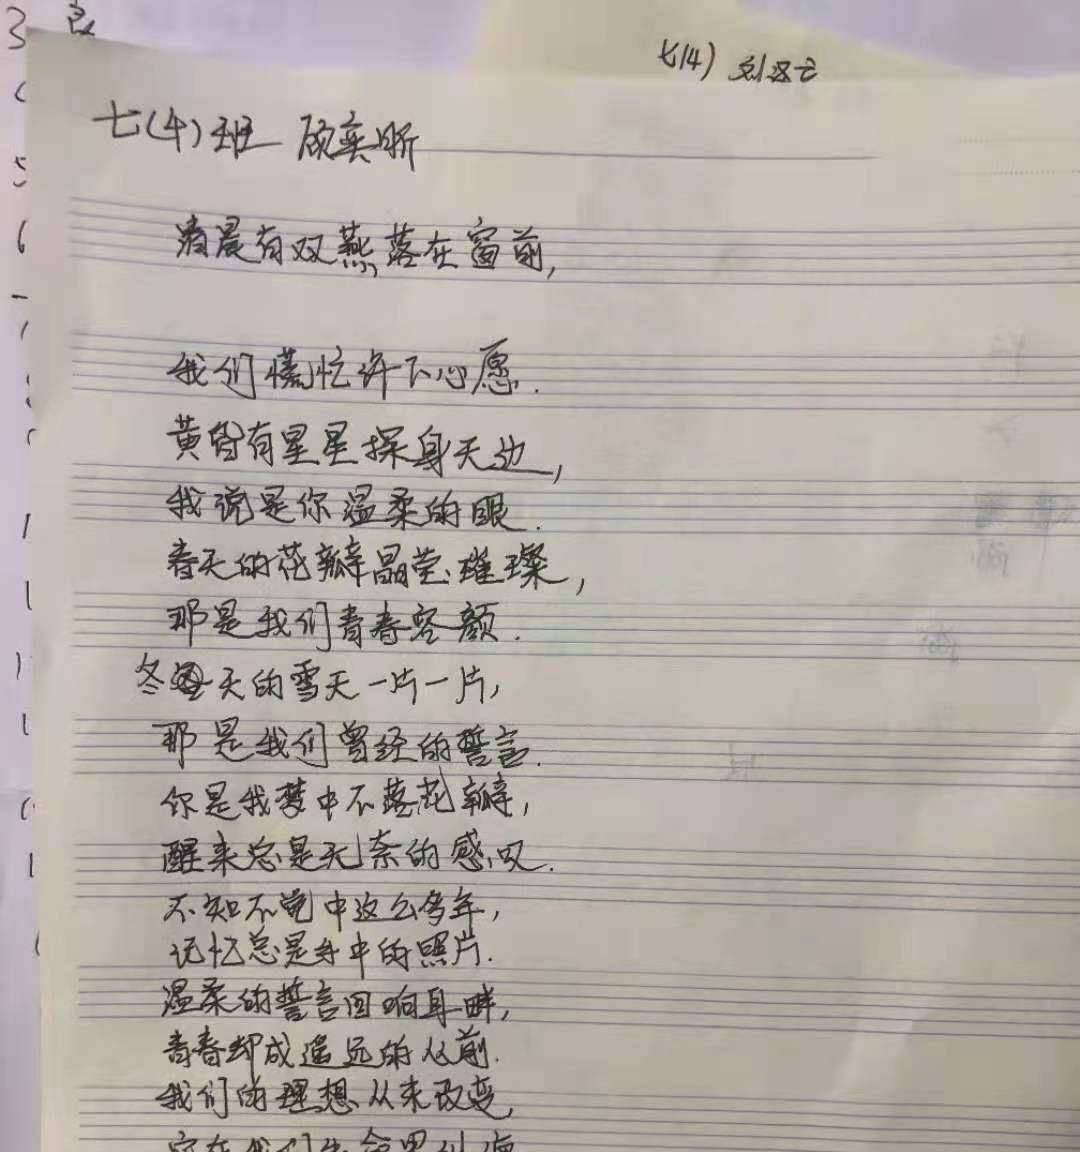 七(4)
七(4)班 顾奕昕
清晨有双燕落在窗前,
我们慌忙许下心愿.
黄昏有星星探身天边,
我说是你温柔的眼.
春天的花瓣晶莹璀璨,
那是我们青春容颜.
冬天的雪天一片一片,
那是我们曾经的誓言.
你是我梦中不落花瓣,
醒来总是无奈的感叹.
不知不觉中这么多年,
记忆总是手中的照片.
温柔的誓言回响耳畔,
青春却成遥远的从前.
我们的理想从未改变,